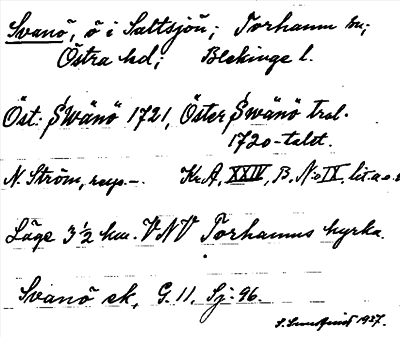 Svanö, ö i Saltsjön; Torhamn sn;
Östra hd; Blekinge l.
Öst: Swänö 1721, Öster Swänö trol.
1720-talet.
N. Ström, resp.-. Kr.A, XXIV, B, N:o IX, lit. a o.
Läge 3½ km. VNV Torhamns kyrka.
Svanö sk, G. 11, Sj: 96.
1927.